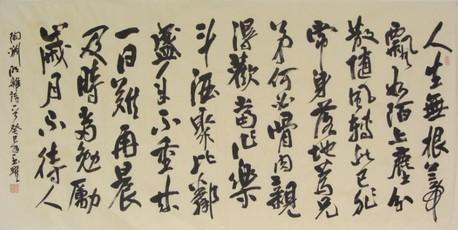 人生無根蒂
飄如陌上塵分
散隨風轉此已非
常身落地為兄
弟何必骨肉親
得歡當作樂
斗酒聚比鄰
盛年不重来
一日難再晨
及時當勉勵
歲月不待人
陶淵明雜詩 癸巳